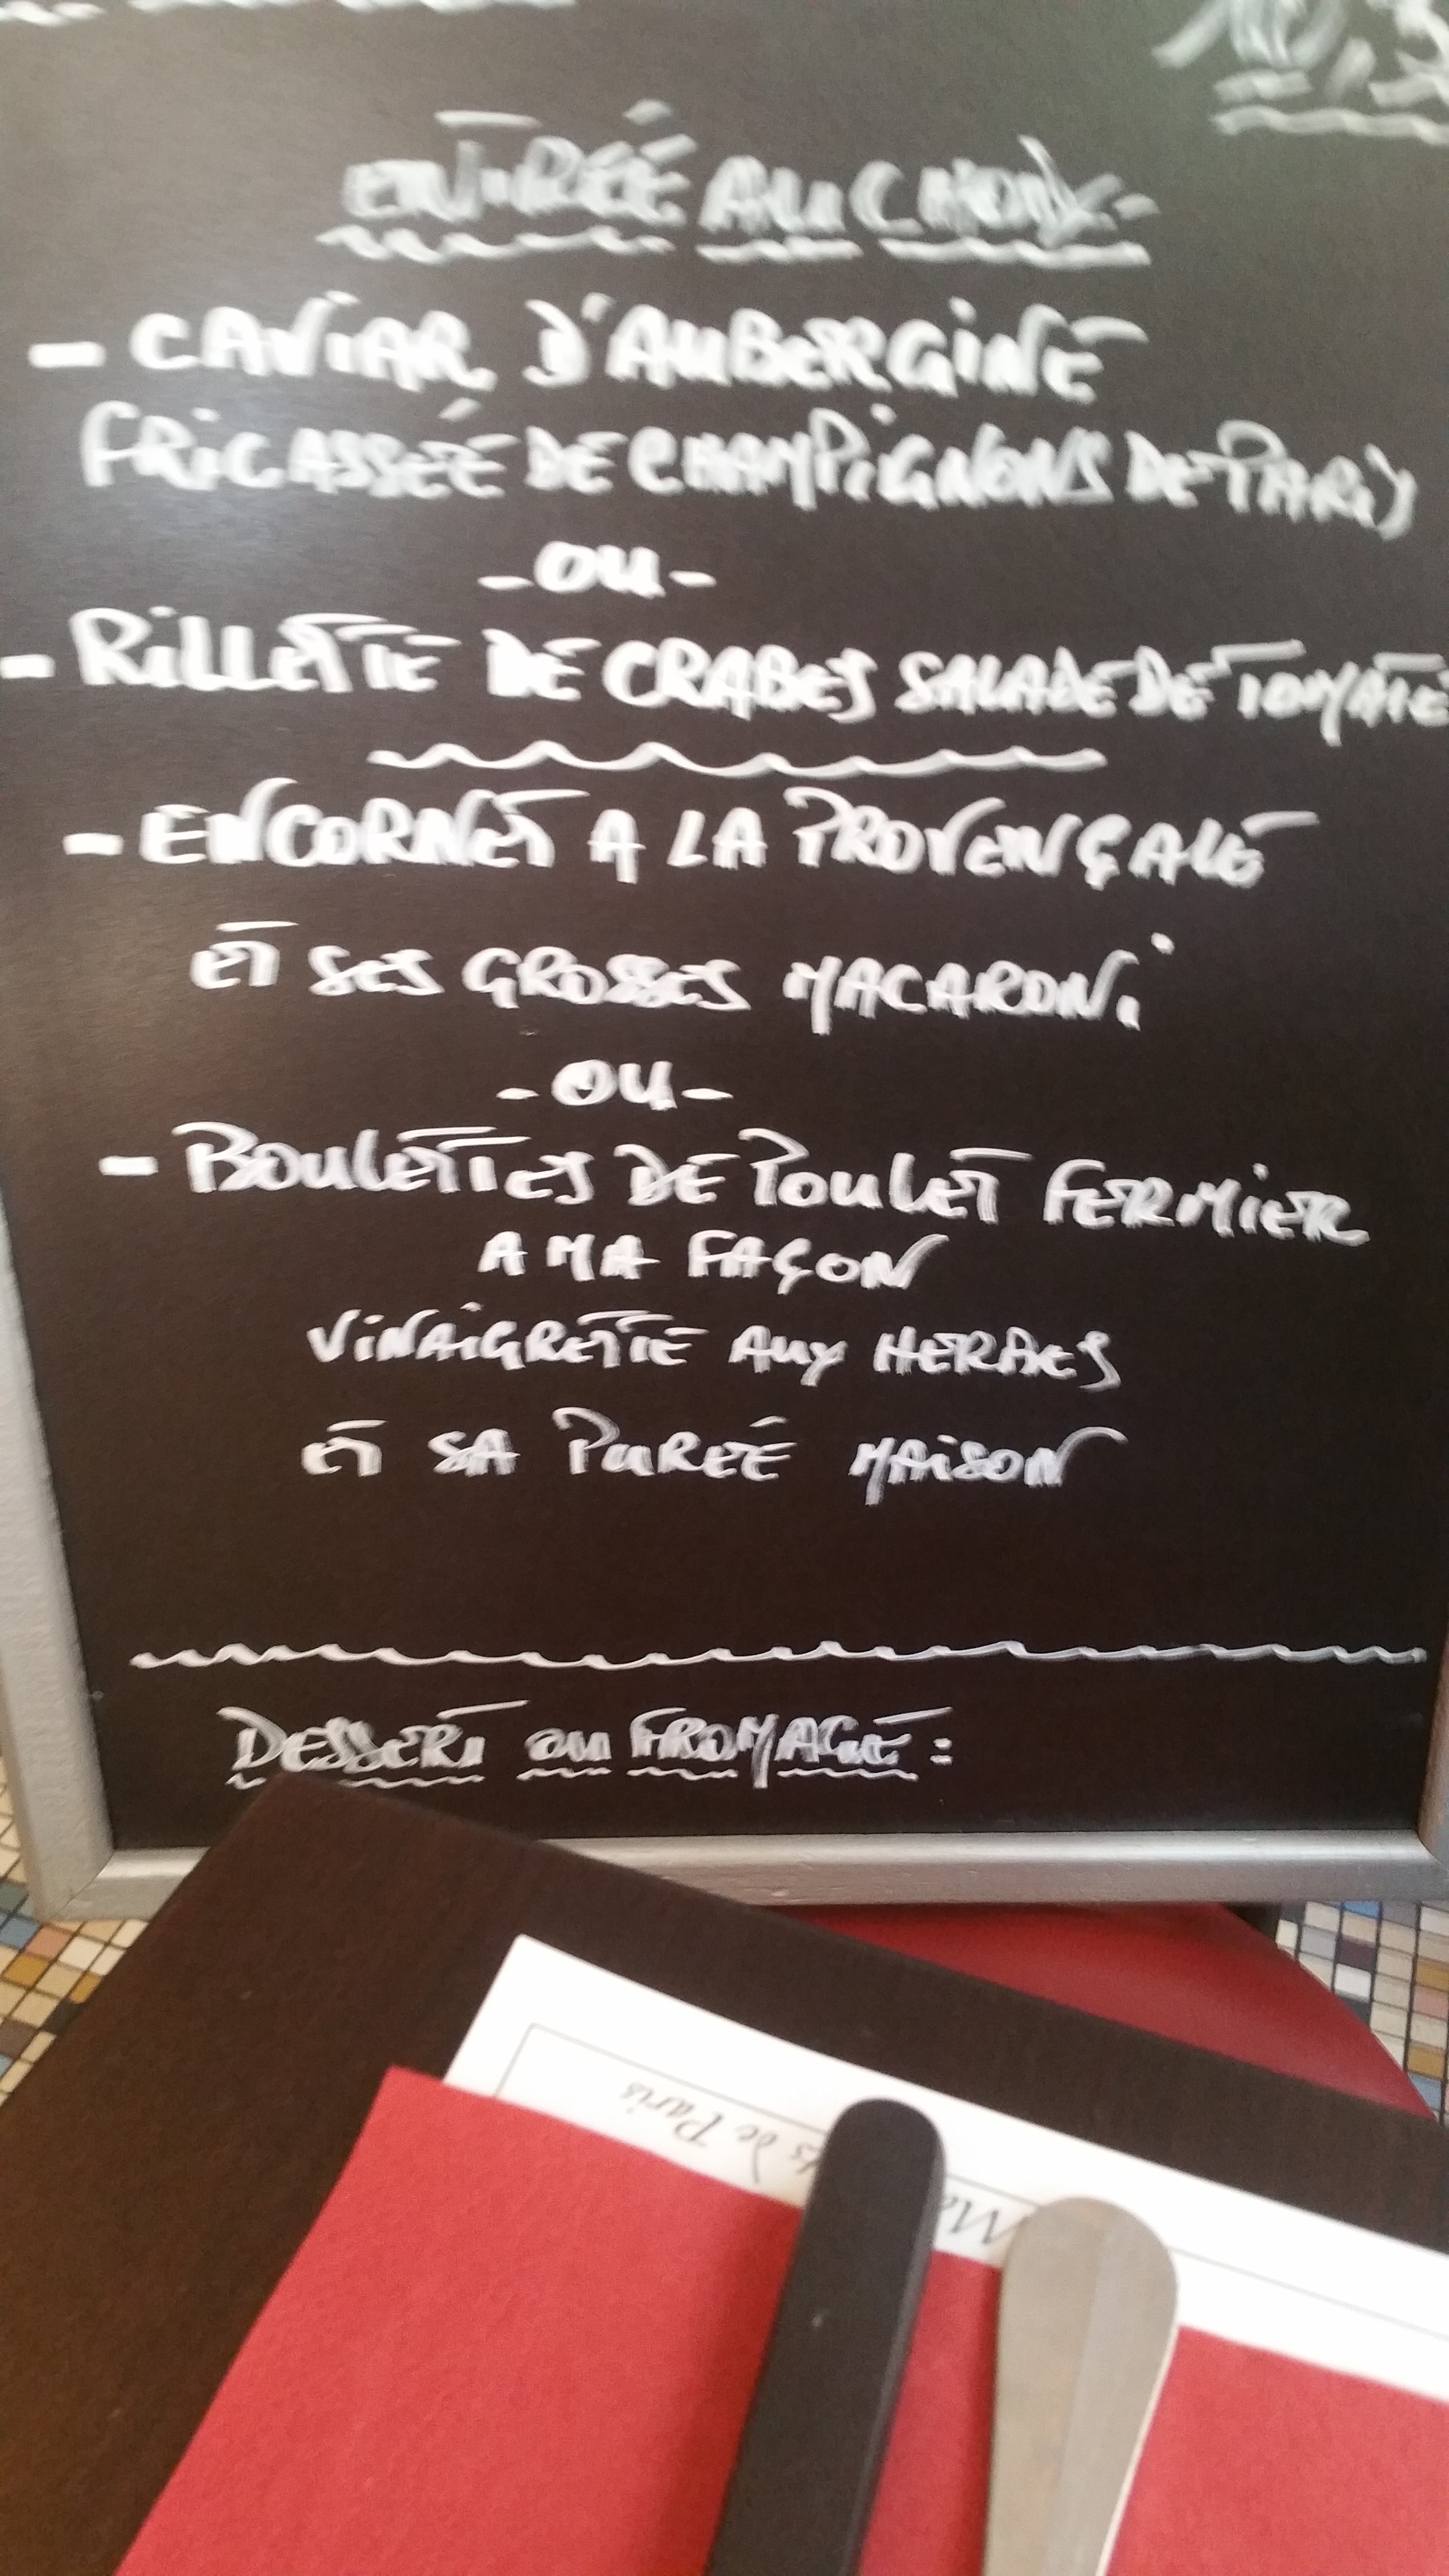 ENTRÉE AU CHOIX
- CAVIAR D'AUBERGINE
FRICASSÉE DE CHAMPIGNONS DE PARIS
- OU -
- RILLETTE DE CRABES SALADE DE TOMATE
- ENCORNET A LA PROVENÇALE
ET SES GROSSES MACARONI
- OU -
- BOULETTES DE POULET FERMIER
A MA FAÇON
VINAIGRETTE AUX HERBES
ET SA PURÉE MAISON
DESSERT OU FROMAGE :
de Paris